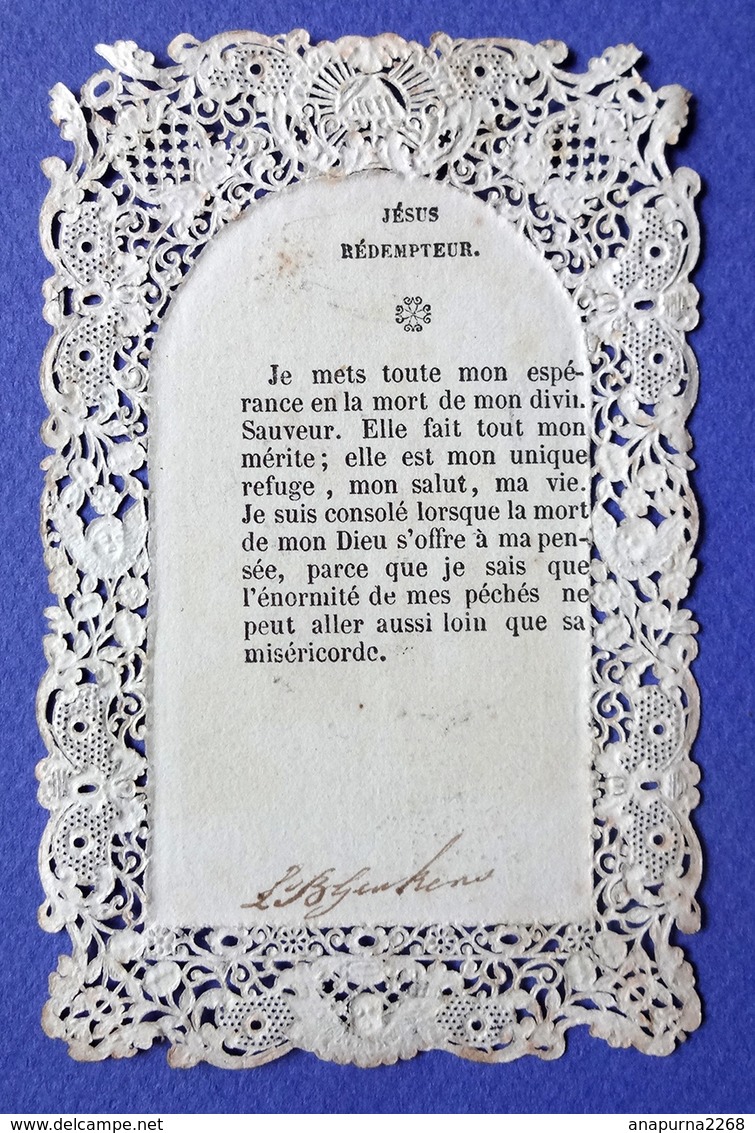 JÉSUS
RÉDEMPTEUR.
Je mets toute mon espé-
rance en la mort de mon divin
Sauveur. Elle fait tout mon
mérite ; elle est mon unique
refuge , mon salut, ma vie.
Je suis consolé lorsque la mort
de mon Dieu s'offre à ma pen-
sée, parce que je sais que
l'énormité de mes péchés ne
peut aller aussi loin que sa
miséricorde.
www.delcampe.net
anapurna2268